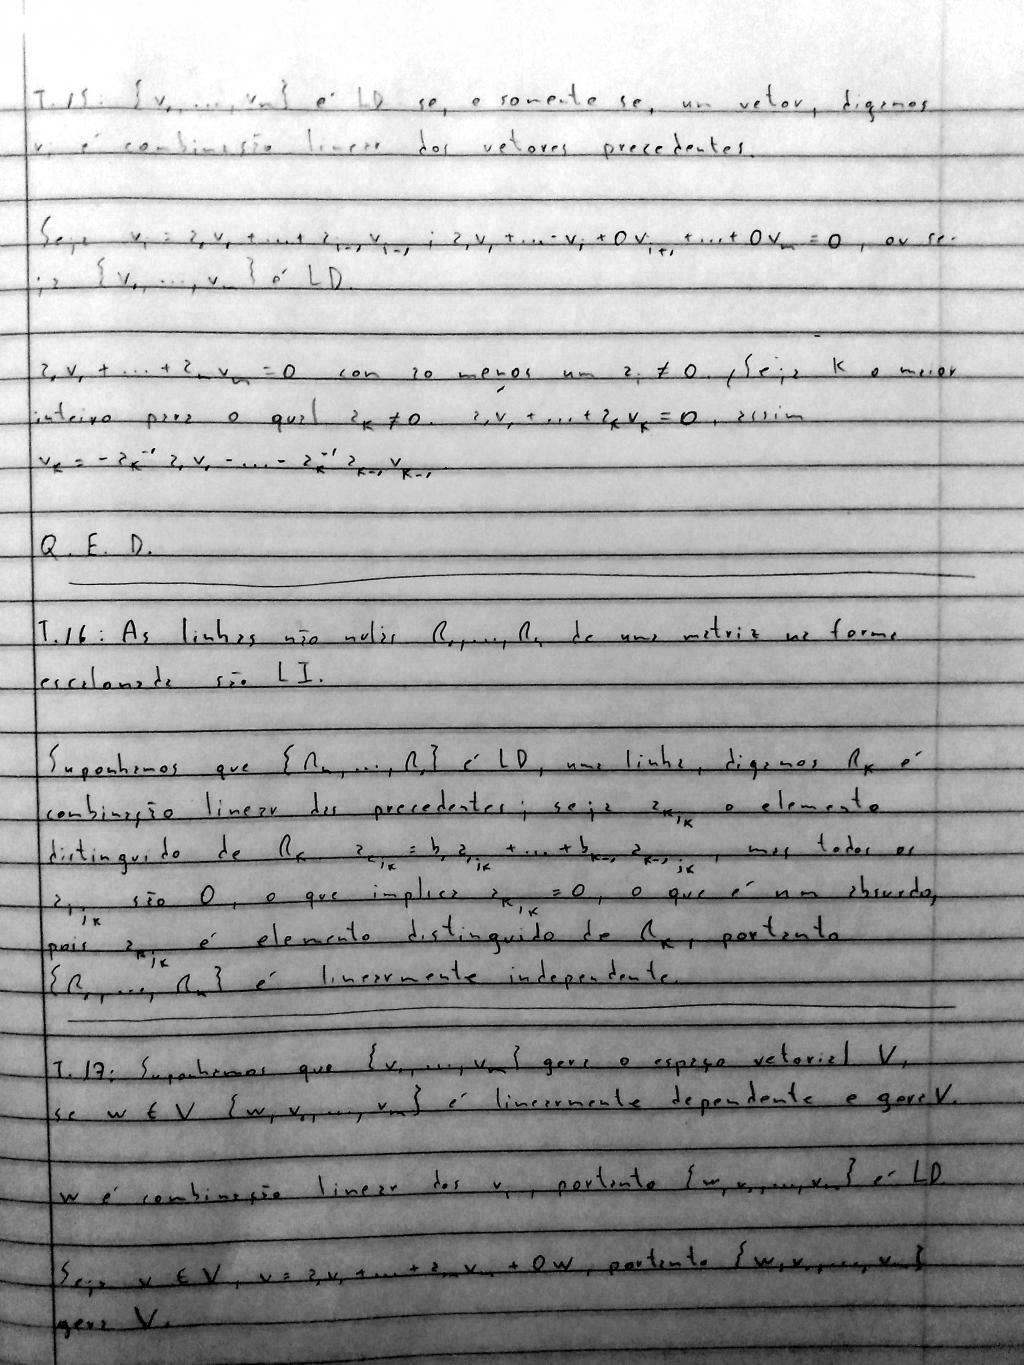 T.15: {v₁, ..., vₘ} é LD se, e somente se, um vetor, digamos
vᵢ é combinação linear dos vetores precedentes.
Seja vᵢ = a₁v₁ + ... + aᵢ₋₁vᵢ₋₁; a₁v₁ + ... - vᵢ + 0vᵢ₊₁ + ... + 0vₘ = 0, ou se-
ja {v₁, ..., vₘ} é LD.
a₁v₁ + ... + aₘvₘ = 0 com ao menos um aᵢ ≠ 0. Seja K o maior
inteiro para o qual aₖ ≠ 0. a₁v₁ + ... + aₖvₖ = 0, assim
vₖ = -aₖ⁻¹a₁v₁ - ... - aₖ⁻¹aₖ₋₁vₖ₋₁
Q. E. D.
T.16: As linhas não nulas R₁, ..., Rₙ de uma matriz na forma
escalonada são LI.
Suponhamos que {Rₙ, ..., R₁} é LD, uma linha, digamos Rₖ é
combinação linear das precedentes; seja aₖⱼₖ o elemento
distinguido de Rₖ aₖⱼₖ = b₁a₁ⱼₖ + ... + bₖ₋₁aₖ₋₁ⱼₖ, mas todos os
aᵢⱼₖ são 0, o que implica aₖⱼₖ = 0, o que é um absurdo,
pois aₖⱼₖ é elemento distinguido de Rₖ, portanto
{R₁, ..., Rₙ} é linearmente independente.
T.17: Suponhamos que {v₁, ..., vₘ} gera o espaço vetorial V,
se w ∈ V {w, v₁, ..., vₘ} é linearmente dependente e gera V.
w é combinação linear dos vᵢ, portanto {w, v₁, ..., vₘ} é LD
Seja v ∈ V, v = a₁v₁ + ... + aₘvₘ + 0w, portanto {w, v₁, ..., vₘ}
gera V.